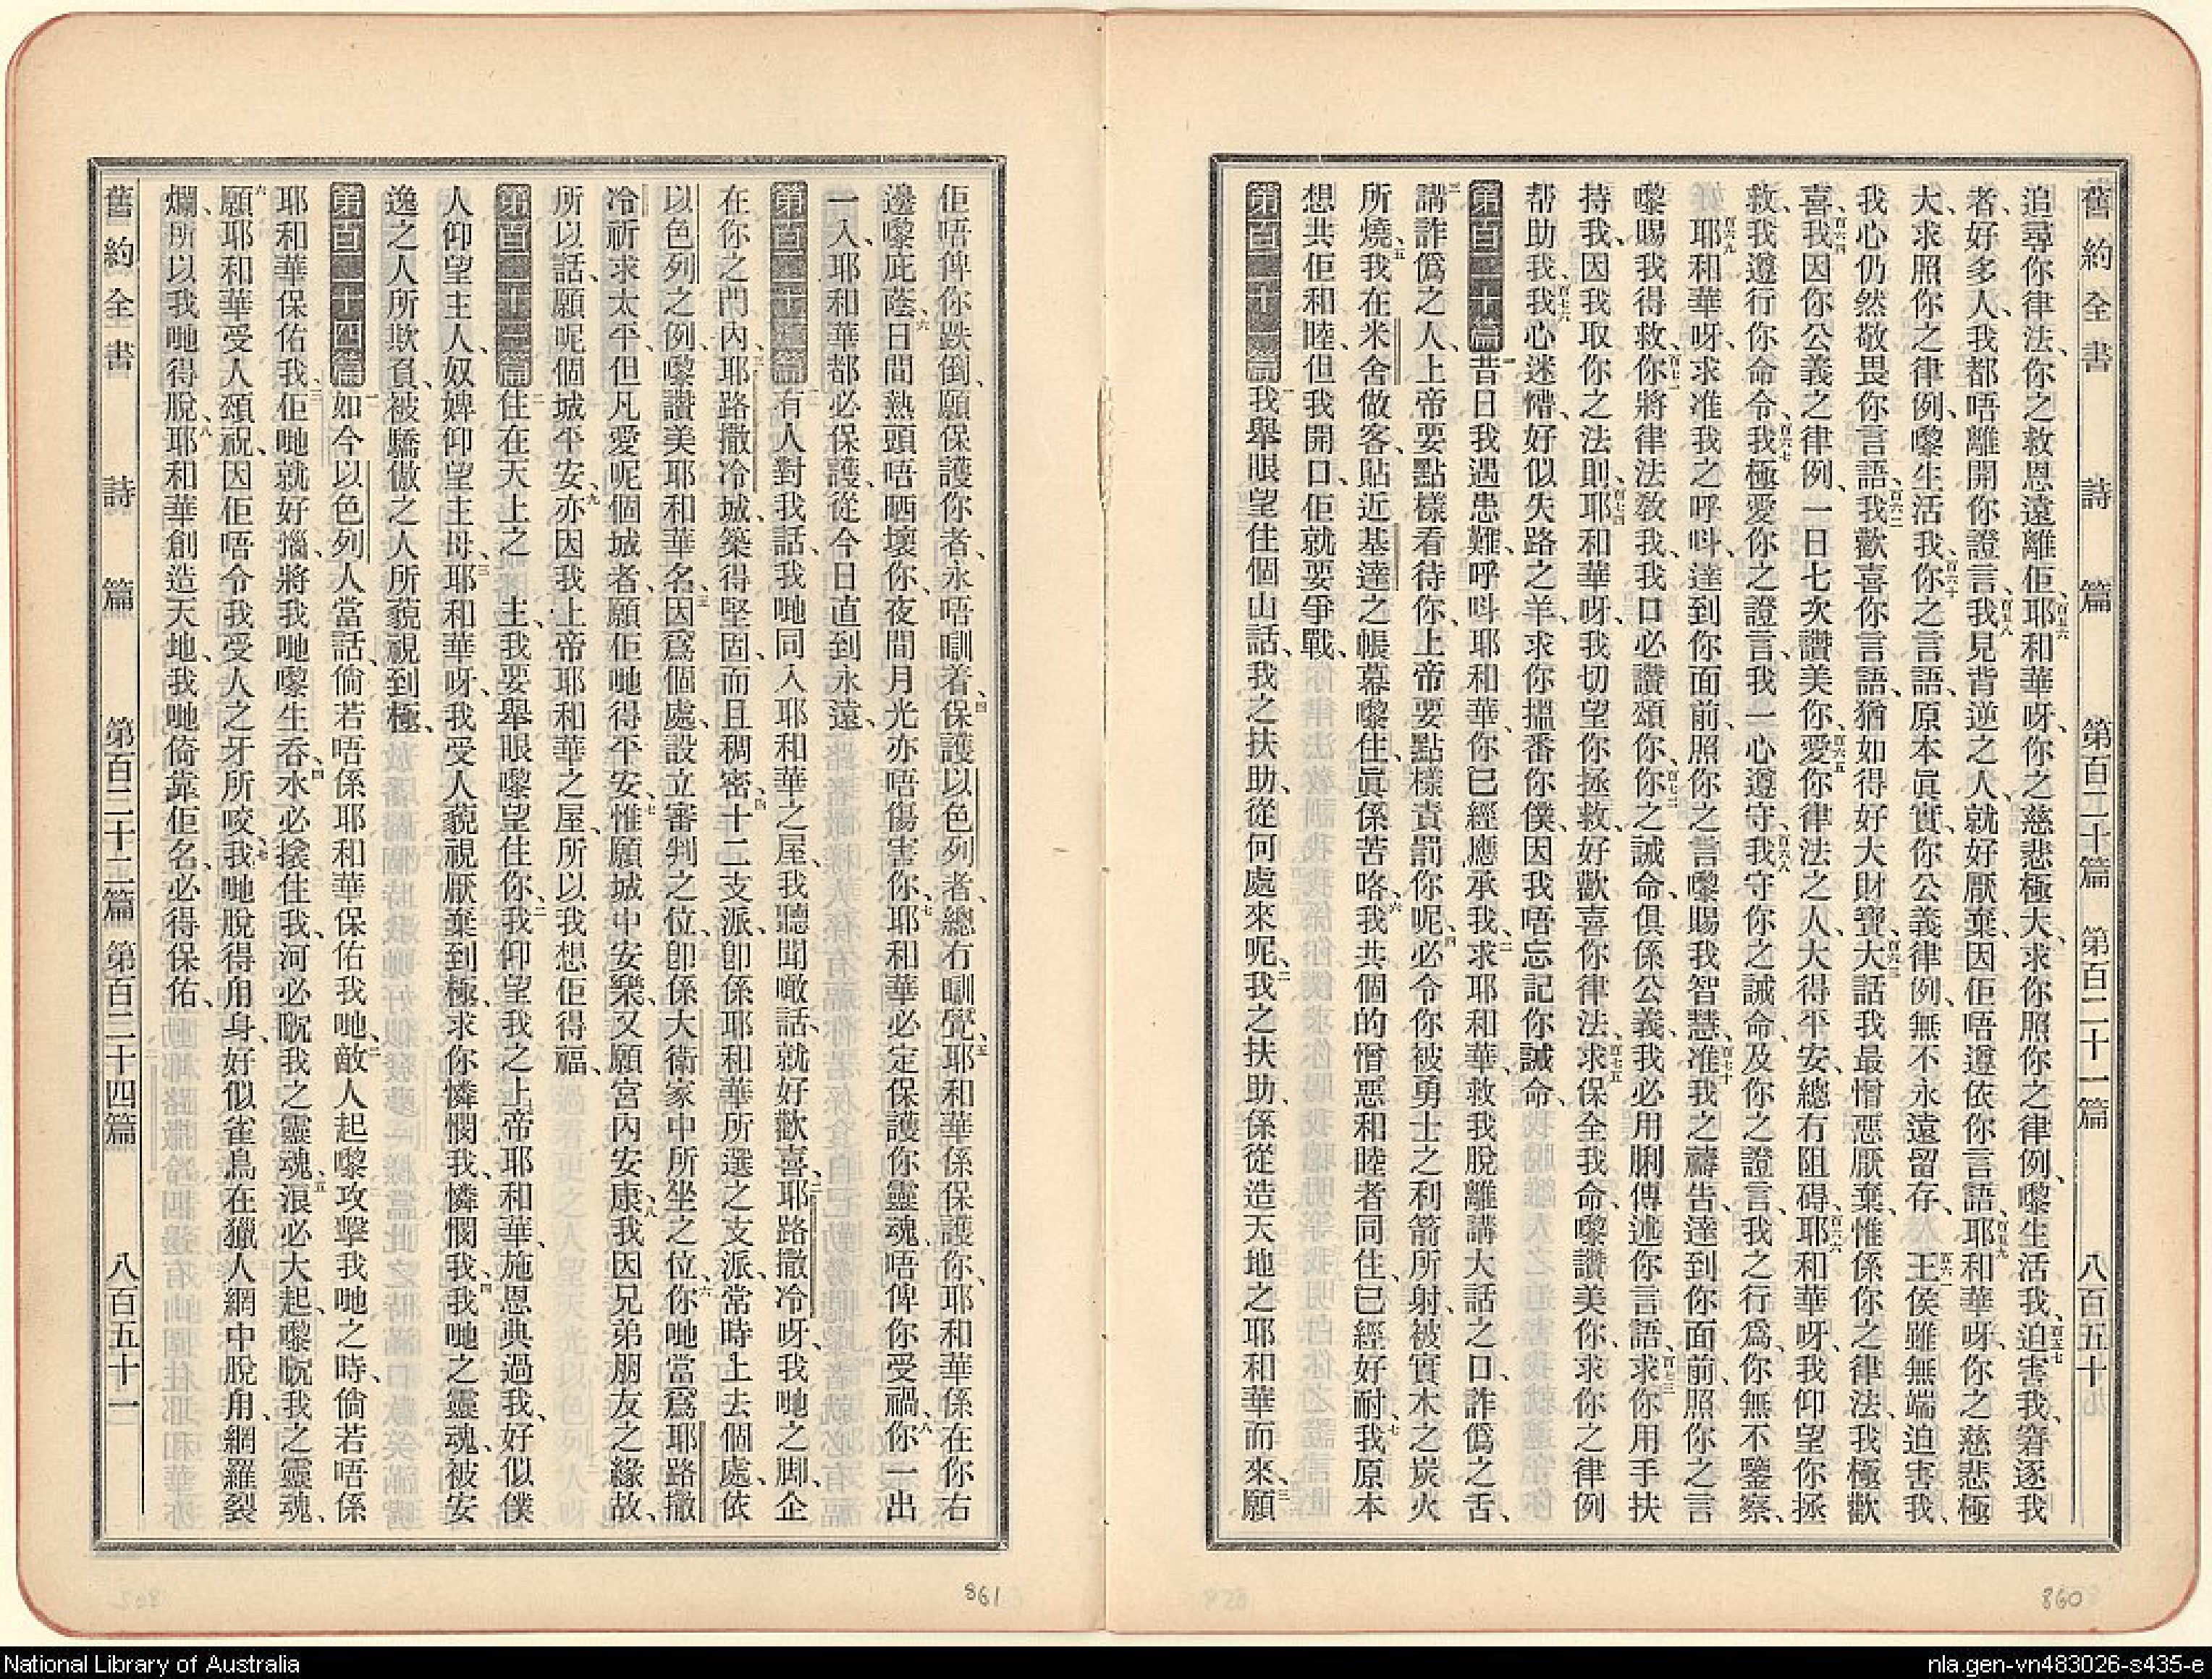 舊約全書 詩篇 第百二十篇 第百二十一篇 八百五十
追尋你律法、你之救恩遠離佢、百五六耶和華呀、你之慈悲極大、求你照你之律例、嚟生活我、百五七迫害我、窘逐我
者、好多人、我都唔離開你證言、百五八我見背逆之人、就好厭棄、因佢唔遵依你言語、百五九耶和華呀、你之慈悲極
大、求照你之律例、嚟生活我、百六十你之言語、原本眞實、你公義律例、無不永遠留存、 百六一王侯雖無端迫害我、
我心仍然敬畏你言語、百六二我歡喜你言語、猶如得好大財寶、百六三大話我最憎惡厭棄、惟係你之律法、我極歡
喜、百六四我因你公義之律例、一日七次讚美你、百六五愛你律法之人、大得平安、總冇阻碍、百六六耶和華呀、我仰望你拯
救、我遵行你命令、百六七我極愛你之證言、我一心遵守、百六八我守你之誡命、及你之證言、我之行爲、你無不鑒察、
百六九耶和華呀、求准我之呼呌、達到你面前、照你之言、嚟賜我智慧、百七十准我之禱告、達到你面前、照你之言
嚟賜我得救、百七一你將律法敎我、我口必讚頌你、百七二你之誡命、俱係公義、我必用脷傳述你言語、百七三求你用手扶
持我、因我取你之法則、百七四耶和華呀、我切望你拯救、好歡喜你律法、百七五求保全我命、嚟讚美你、求你之律例
帮助我、百七六我心迷懵、好似失路之羊、求你搵番你僕、因我唔忘記你誡命、
第百二十篇 一昔日我遇患難、呼呌耶和華、你已經應承我、二求耶和華、救我脫離講大話之口、詐僞之舌、
三講詐僞之人、上帝要點樣看待你、上帝要點樣責罰你呢、四必令你被勇士之利箭所射、被實木之炭火
所燒、五我在米舍做客、貼近基達之帳幕嚟住、眞係苦咯、六我共個的憎惡和睦者同住、已經好耐、七我原本
想共佢和睦、但我開口、佢就要爭戰、
第百二十一篇 一我舉眼望住個山話、我之扶助、從何處來呢、二我之扶助、係從造天地之耶和華而來、三願
佢唔俾你跌倒、願保護你者、永唔瞓着、四保護以色列者、總冇瞓覺、五耶和華係保護你、耶和華係在你右
邊嚟庇蔭、六日間熱頭唔晒壞你、夜間月光亦唔傷害你、七耶和華必定保護你靈魂、唔俾你受禍、八你一出
一入、耶和華都必保護、從今日直到永遠、
第百二十二篇 一有人對我話、我哋同入耶和華之屋、我聽聞噉話、就好歡喜、二耶路撒冷呀、我哋之脚、企
在你之門內、三耶路撒冷城、築得堅固、而且稠密、四十二支派、卽係耶和華所選之支派、常時上去個處、依
以色列之例、嚟讚美耶和華名、五因爲個處、設立審判之位、卽係大衛家中所坐之位、六你哋當爲耶路撒
冷祈求太平、但凡愛呢個城者、願佢哋得平安、七惟願城中安樂、又願宮內安康、八我因兄弟朋友之緣故、
所以話、願呢個城平安、九亦因我上帝耶和華之屋、所以我想佢得福、
第百二十三篇 一住在天上之 主、我要舉眼嚟望住你、二我仰望我之上帝耶和華、施恩典過我、好似僕
人仰望主人、奴婢仰望主母、三耶和華呀、我受人藐視厭棄到極、求你憐憫我、憐憫我、四我哋之靈魂、被安
逸之人所欺負、被驕傲之人所藐視到極、
第百二十四篇 一如今以色列人當話、倘若唔係耶和華保佑我哋、二敵人起嚟攻擊我哋之時、倘若唔係
耶和華保佑我、三佢哋就好惱、將我哋嚟生吞、四水必揜住我、河必䀐我之靈魂、五浪必大起、嚟䀐我之靈魂、
六願耶和華受人頌祝、因佢唔令我受人之牙所咬、七我哋脫得甪身、好似雀鳥在獵人網中脫甪、網羅裂
爛、所以我哋得脫、八耶和華創造天地、我哋倚靠佢名、必得保佑、
舊約全書 詩篇 第百二十二篇 第百二十四篇 八百五十一
861
860
National Library of Australia
nla.gen-vn483026-s435-e